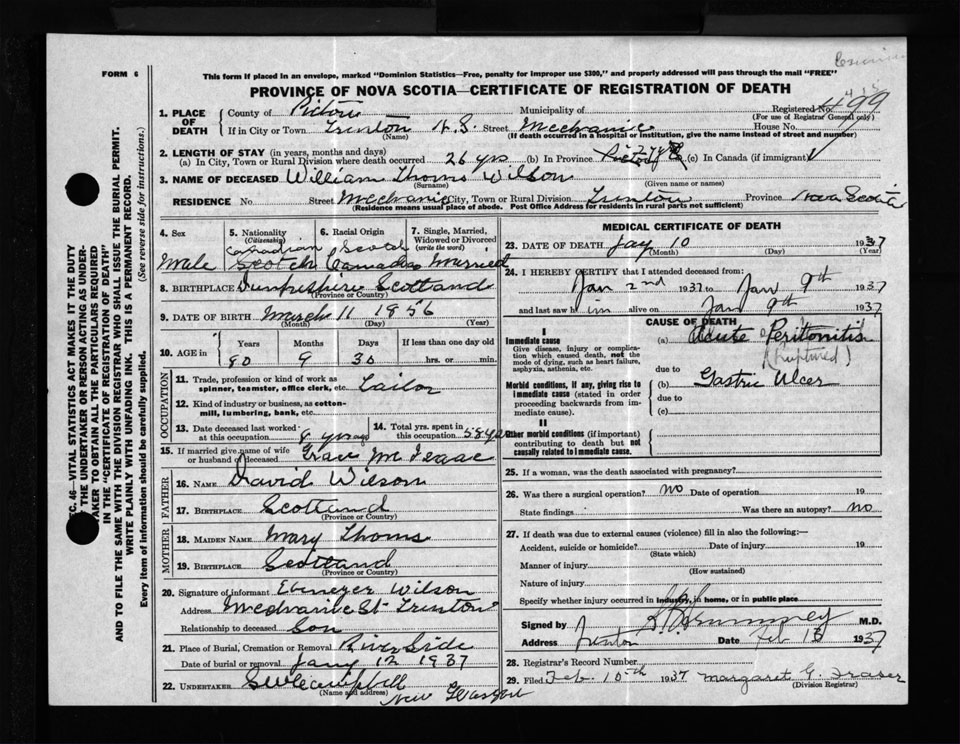 FORM 6
This form if placed in an envelope, marked "Dominion Statistics—Free, penalty for improper use $300," and properly addressed will pass through the mail "FREE"
PROVINCE OF NOVA SCOTIA—CERTIFICATE OF REGISTRATION OF DEATH
1. PLACE OF DEATH
County of Pictou Municipality of Registered No. 499
(For use of Registrar General only)
If in City or Town Trenton N.S. Street Mechanic House No.
(Name) (If death occurred in a hospital or institution, give the name instead of street and number)
2. LENGTH OF STAY (in years, months and days)
(a) In City, Town or Rural Division where death occurred 26 yrs (b) In Province (c) In Canada (if immigrant)
3. NAME OF DECEASED William Thoms Wilson
(Surname) (Given name or names)
RESIDENCE No. Street Mechanic City, Town or Rural Division Trenton Province Nova Scotia
(Residence means usual place of abode. Post Office Address for residents in rural parts not sufficient)
4. Sex
Male
5. Nationality
(Citizenship)
Canadian
Scotch
6. Racial Origin
Scotch
Canadian
7. Single, Married, Widowed or Divorced
(write the word)
Married
8. BIRTHPLACE Dumfreshire Scotland
(Province or Country)
9. DATE OF BIRTH March 11 1956
(Month) (Day) (Year)
10. AGE in
Years Months Days If less than one day old
80 9 30 hrs. or min.
OCCUPATION
11. Trade, profession or kind of work as spinner, teamster, office clerk, etc. Tailor
12. Kind of industry or business, as cotton-mill, lumbering, bank, etc.
13. Date deceased last worked at this occupation 8 yrs ago
14. Total yrs. spent in this occupation 58 yrs
15. If married give name of wife or husband of deceased Grace McIsaac
FATHER
16. NAME David Wilson
17. BIRTHPLACE Scotland
(Province or Country)
MOTHER
18. MAIDEN NAME Mary Thoms
19. BIRTHPLACE Scotland
(Province or Country)
20. Signature of informant Ebenezer Wilson
Address Mechanic St Trenton
Relationship to deceased Son
21. Place of Burial, Cremation or Removal River Side
Date of burial or removal Jany 12 1937
22. UNDERTAKER
(Name and address)
New Glasgow
MEDICAL CERTIFICATE OF DEATH
23. DATE OF DEATH Jay 10 1937
(Month) (Day) (Year)
24. I HEREBY CERTIFY that I attended deceased from:
Jan 2nd 1937 to Jan 9th 1937
and last saw him alive on Jan 9th 1937
CAUSE OF DEATH
I
Immediate cause
Give disease, injury or complication which caused death, not the mode of dying, such as heart failure, asphyxia, asthenia, etc.
(a) Acute Peritonitis
(ruptured)
due to
Morbid conditions, if any, giving rise to immediate cause (stated in order proceeding backwards from immediate cause).
(b) Gastric Ulcer
due to
(c)
II
Other morbid conditions (if important) contributing to death but not causally related to immediate cause.
25. If a woman, was the death associated with pregnancy?
26. Was there a surgical operation? no Date of operation 19
State findings Was there an autopsy? no
27. If death was due to external causes (violence) fill in also the following:—
Accident, suicide or homicide? Date of injury 19
(State which)
Manner of injury
(How sustained)
Nature of injury
Specify whether injury occurred in industry, in home, or in public place
Signed by M.D.
Address Trenton Date Feb 1937
28. Registrar's Record Number
29. Filed Feb. 10th 1937 Margaret G. Fraser
(Division Registrar)
SEC. 46—VITAL STATISTICS ACT MAKES IT THE DUTY OF THE UNDERTAKER OR PERSON ACTING AS UNDERTAKER TO OBTAIN ALL THE PARTICULARS REQUIRED IN THE "CERTIFICATE OF REGISTRATION OF DEATH" AND TO FILE THE SAME WITH THE DIVISION REGISTRAR WHO SHALL ISSUE THE BURIAL PERMIT.
WRITE PLAINLY WITH UNFADING INK. THIS IS A PERMANENT RECORD.
Every item of information should be carefully supplied. (See reverse side for instructions.)